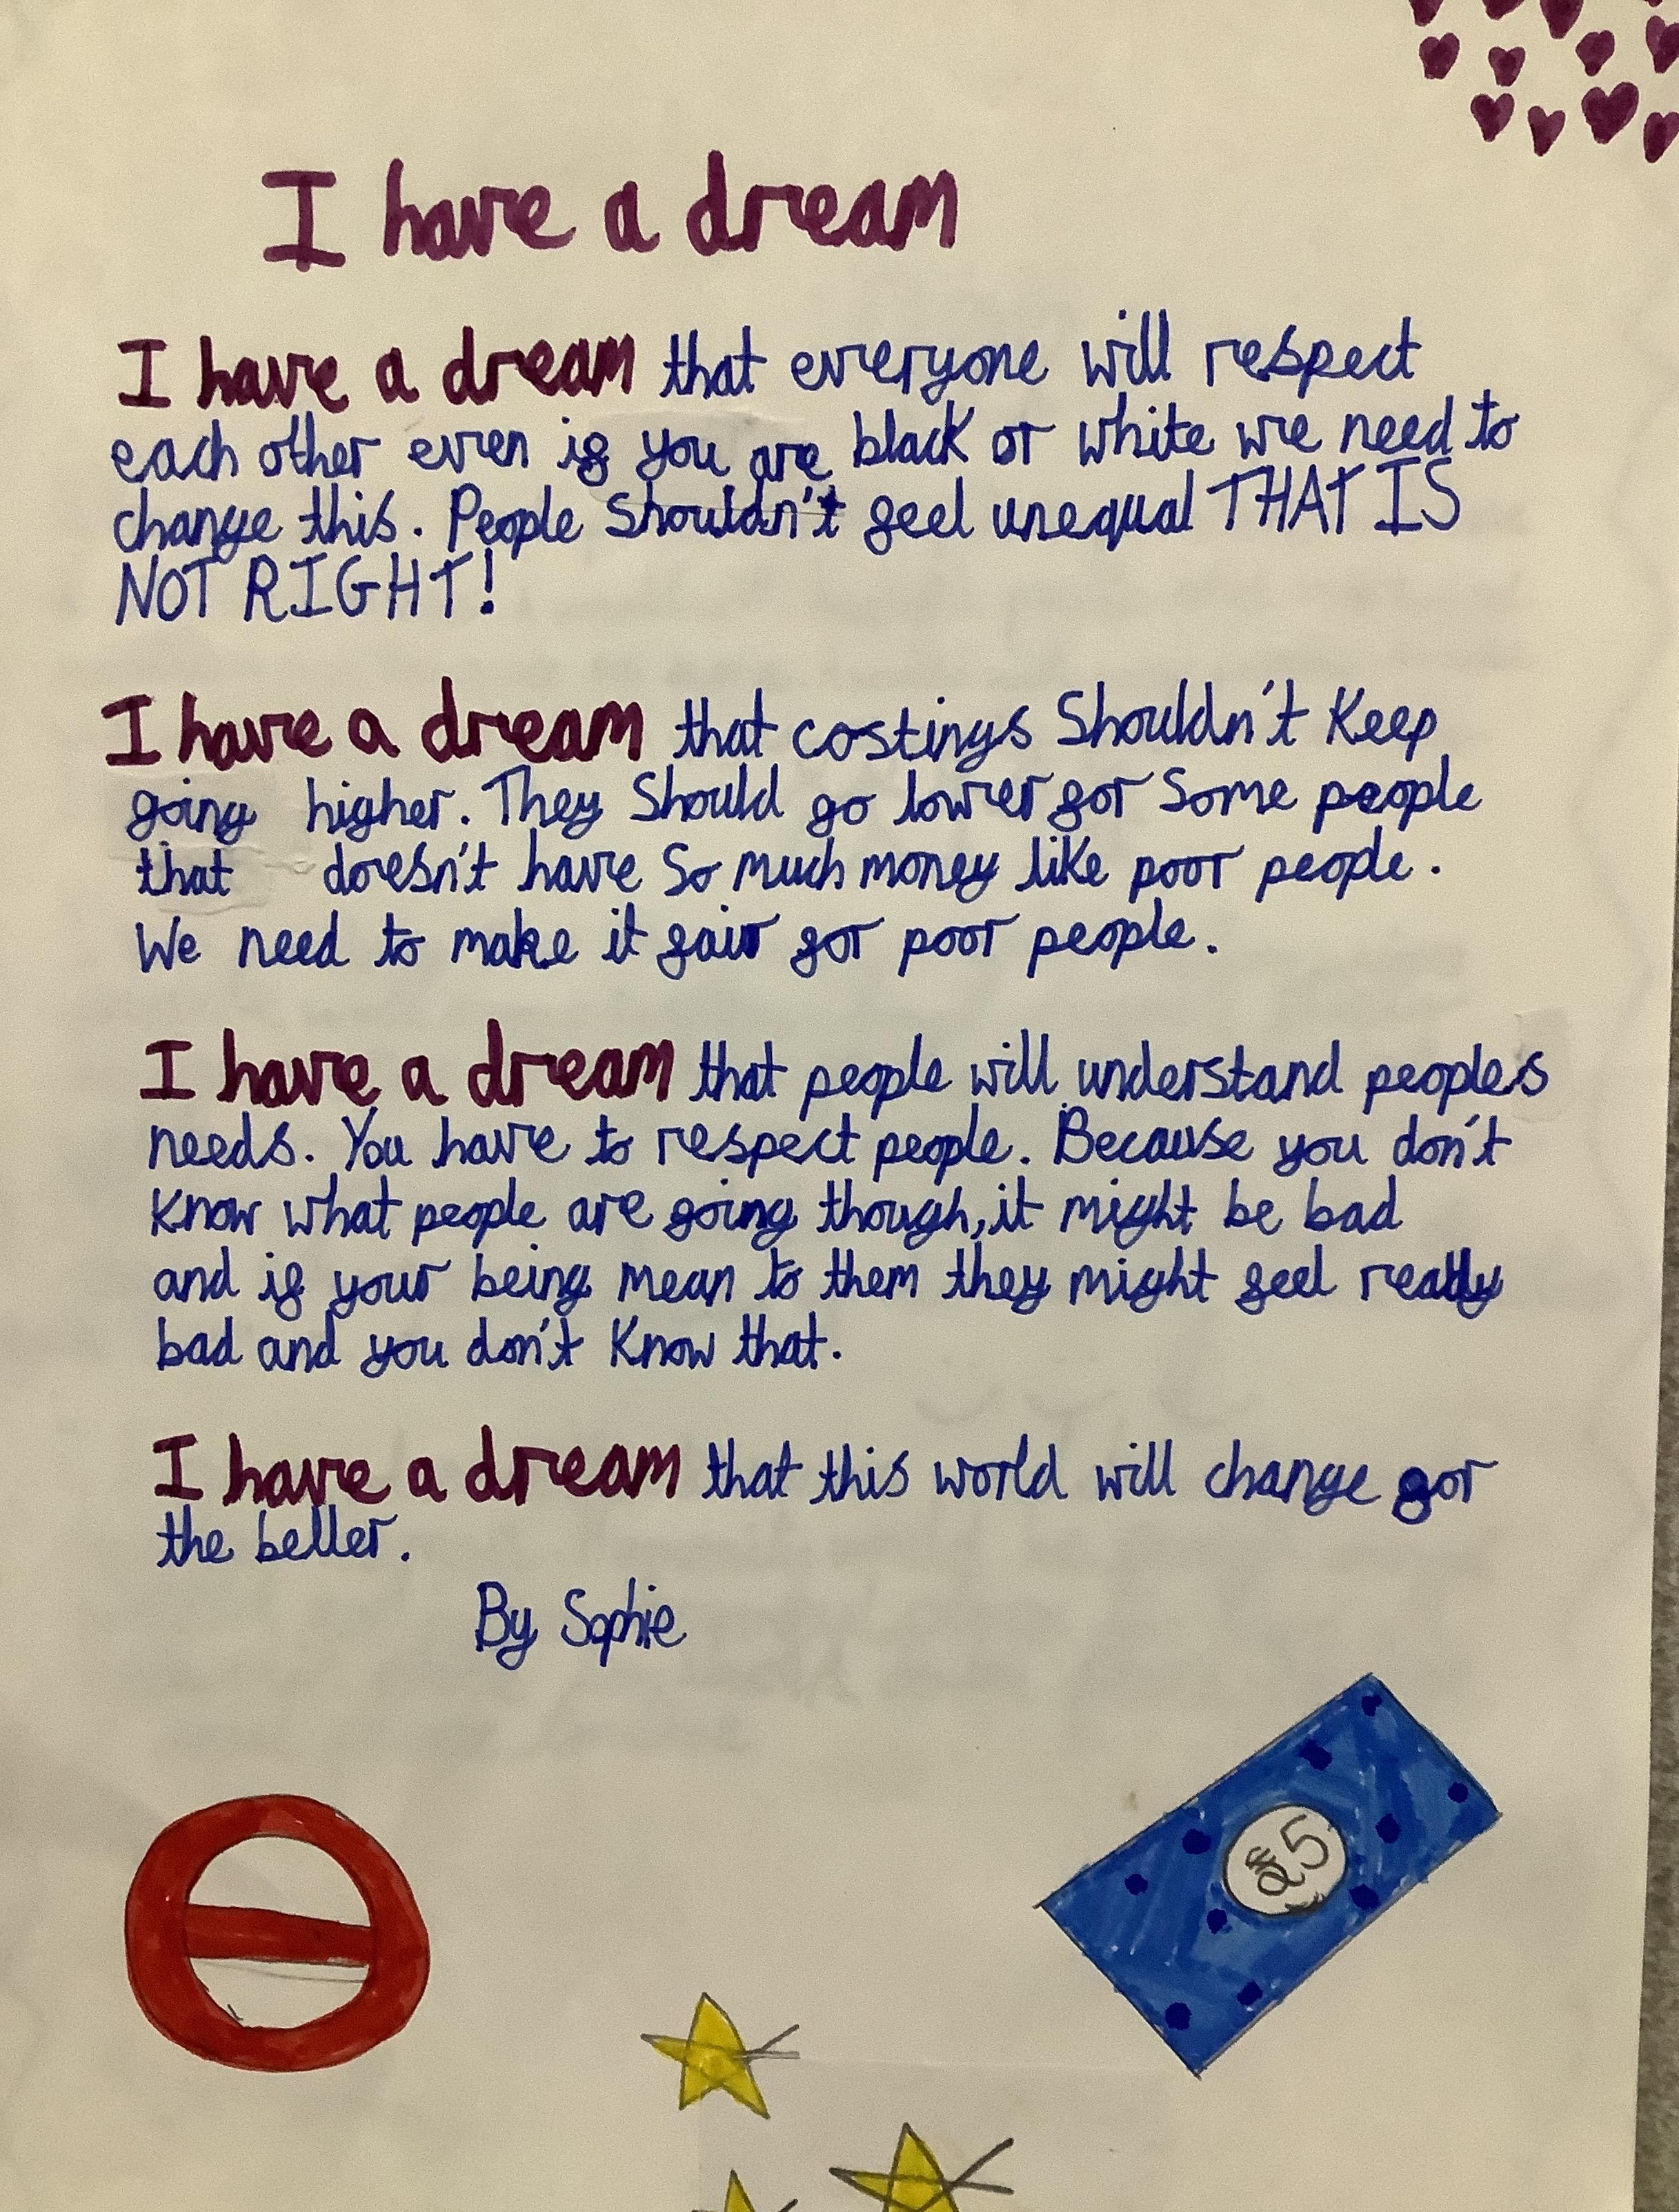 I have a dream
I have a dream that everyone will respect
each other even if you are black or white we need to
change this. People shouldn't feel unequal THAT IS
NOT RIGHT!
I have a dream that costings Shouldn't Keep
going higher. They Should go lower for Some people
that doesn't have So much money like poor people.
We need to make it fair for poor people.
I have a dream that people will understand peoples
needs. You have to respect people. Because you don't
know what people are going though, it might be bad
and if your being mean to them they might feel really
bad and you don't know that.
I have a dream that this world will change for
the better.
By Sophie
£5